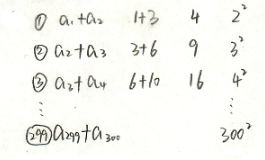 ① a₁+a₂ 1+3 4 2²
② a₂+a₃ 3+6 9 3²
③ a₃+a₄ 6+10 16 4²
⋮ ⋮
㉙⑨ a₂₉₉+a₃₀₀ 300²